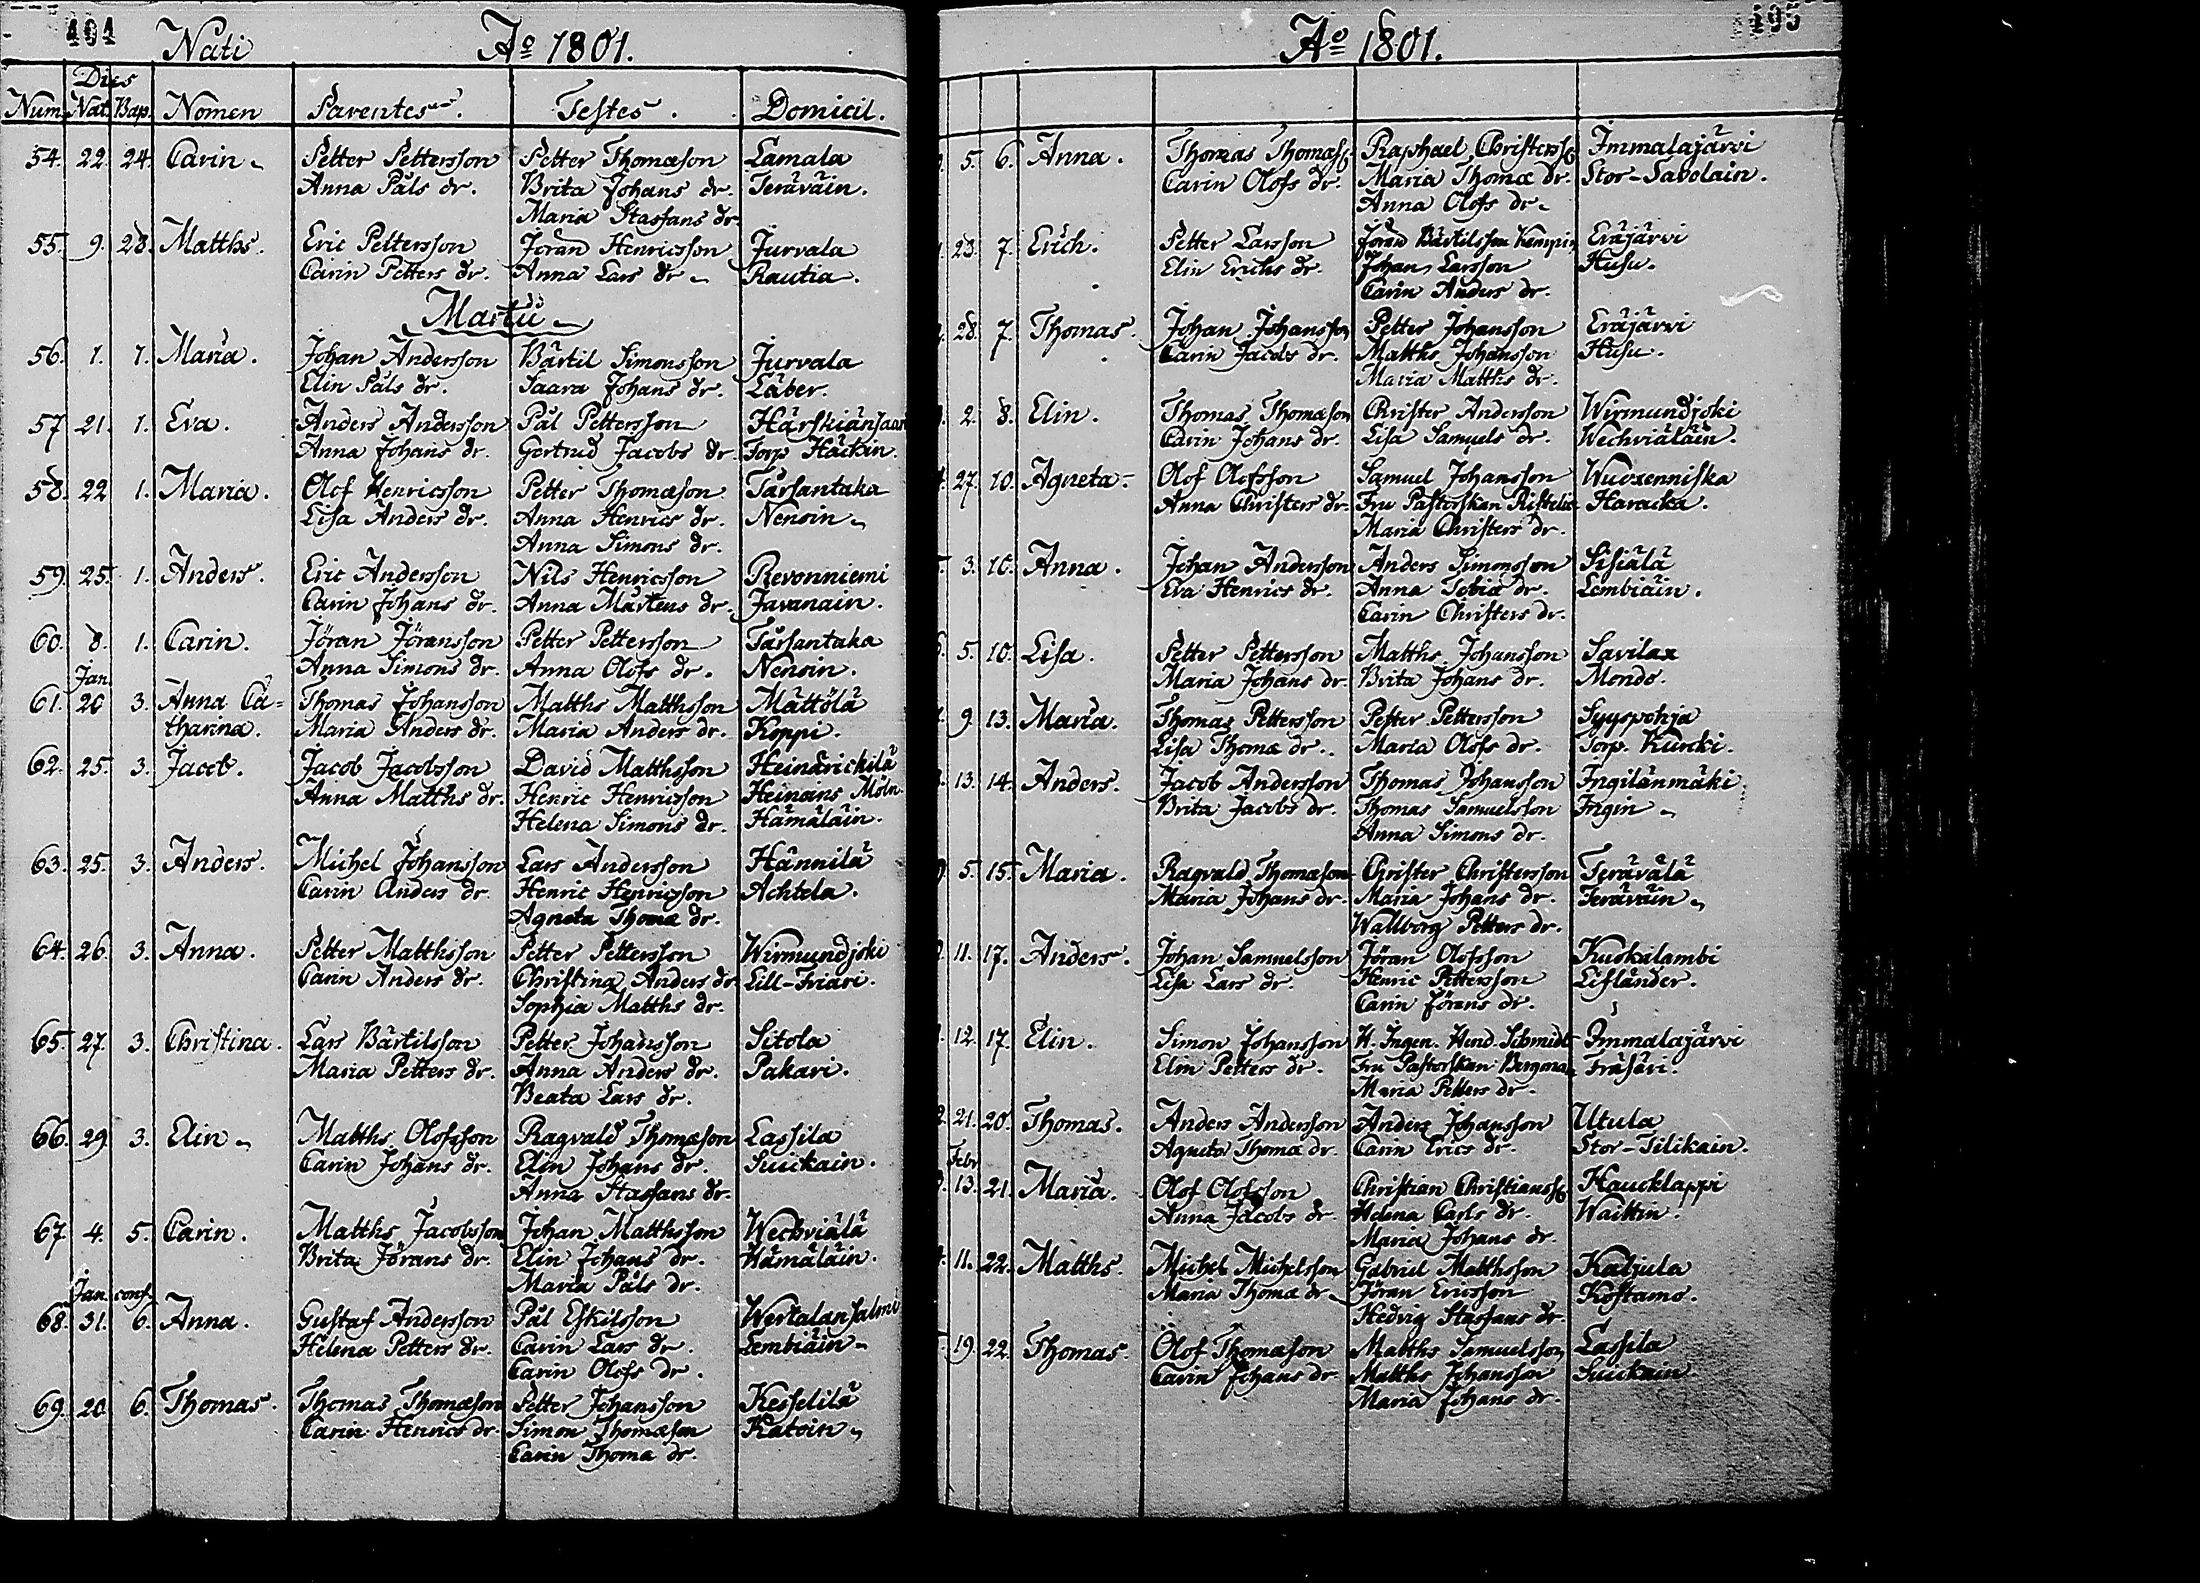 404
Nati Ao 1801.
Dies
Num. Nat. Bap. Nomen Parentes. Testes. Domicil.
54. 22. 24. Carin Petter Pettersson Petter Thomæson Lamala
Anna Påls dr. Brita Johans dr. Teräväin.
Maria Staffans dr.
55. 9. 28. Matths. Eric Pettersson Jöran Henricsson Jurvala
Carin Petters dr. Anna Lars dr Rautia.
Martii
56. 1. 1. Maria. Johan Andersson Bärtil Simonsson Jurvala
Elin Påls dr. Saara Johans dr. Läber.
57 21. 1. Eva. Anders Andersson Pål Pettersson Härskiänsaari
Anna Johans dr. Gertrud Jacobs dr Torp Häckin.
58. 22 1. Maria. Olof Henricsson Petter Thomæson Tarsantaka
Lisa Anders dr. Anna Henrics dr. Nenoin
Anna Simons dr.
59. 25. 1. Anders. Eric Andersson Nils Henricsson Revonniemi
Carin Johans dr. Anna Mårtens dr. Javanain.
60. 8. 1. Carin. Jöran Jöransson Petter Pettersson Tarsantaka
Anna Simons dr. Anna Olofs dr. Nenoin.
Jan.
61. 20 3. Anna Ca= Thomas Johansson Matths Matthsson Mättölä
tharina. Maria Anders dr. Maria Anders dr. Koppi.
62. 25. 3. Jacob. Jacob Jacobsson David Matthsson Heindrickilä
Anna Matths dr. Henric Henricsson Heinans Möln.
Helena Simons dr. Hämäläin.
63. 25. 3. Anders. Michel Johansson Lars Andersson Hännilä
Carin Anders dr. Henric Henricsson Achtela.
Agneta Thomæ dr.
64. 26. 3. Anna. Petter Matthsson Petter Pettersson Wirmundjoki
Carin Anders dr. Christina Anders dr. Lill-Friari.
Sophia Matths dr.
65. 27. 3. Christina. Lars Bärtilsson Petter Johansson Sitola
Maria Petters dr. Anna Anders dr. Pakari.
Beata Lars dr.
66. 29. 3. Elin Matths Olofsson Ragvald Thomæson Lassila
Carin Johans dr. Elin Johans dr. Suickain.
Anna Staffans dr.
67. 4. 5. Carin. Matths Jacobsson Johan Matthsson Wechviälä
Brita Jörans dr. Elin Johans dr. Hämäläin.
Maria Påls dr.
Jan. conf.
68. 31. 6. Anna. Gustaf Andersson Pål Eskilsson Wertalansalmi
Helena Petters dr. Carin Lars dr. Lembiäin
Carin Olofs dr.
69. 20. 6. Thomas. Thomas Thomæson Petter Johansson Kesselilä
Carin Henrics dr Simon Thomæson Katoin
Carin Thomæ dr.
495
Ao 1801.
5. 6. Anna. Thomas Thomæss. Raphael Christerss. Immalajärvi
Carin Olofs dr. Maria Thomæ dr. Stor-Savolain.
Anna Olofs dr.
23. 7. Erich. Petter Larsson Jöran Bärtilsson Kempin Eräjärvi
Elin Erichs dr. Johan Larsson Husu.
Carin Anders dr.
28. 7. Thomas. Johan Johansson Petter Johansson Eräjärvi
Carin Jacobs dr. Matths Johansson Husu.
Maria Matths dr.
2. 8. Elin. Thomas Thomæson Christer Andersson Wirmundjoki
Carin Johans dr. Lisa Samuels dr. Wechviäläin.
27. 10. Agneta. Olof Olofsson Samuel Johansson Wuoxenniska
Anna Christers dr. Fru Pastorskan Haracka.
Maria Christers dr.
3. 10. Anna. Johan Andersson Anders Simonsson Sisiälä
Eva Henrics dr. Anna Tobiæ dr. Lembiäin.
Carin Christers dr.
5. 10. Lisa. Petter Pettersson Matths Johansson Savilax
Maria Johans dr. Brita Johans dr. Mondo.
9. 13. Maria. Thomas Pettersson Petter Pettersson Syyspohja
Lisa Thomæ dr. Maria Olofs dr. Torp. Kurcki.
13. 14. Anders. Jacob Andersson Thomas Johansson Ingilänmäki
Brita Jacobs dr. Thomas Samuelsson Ingin
Anna Simons dr.
5. 15. Maria. Ragvald Thomæson Christer Christersson Terävälä
Maria Johans dr. Maria Johans dr. Teräväin
Wallborg Petters dr.
11. 17. Anders. Johan Samuelsson Jöran Olofsson Kuokilambi
Lisa Lars dr. Henric Pettersson Lifländer.
Carin Jörans dr.
12. 17. Elin. Simon Johansson H. Ingen. Hend. Schmidt Immalajärvi
Elin Petters dr. Fru Pastorskan Bergman Fräsäri.
Maria Petters dr.
21. 20. Thomas. Anders Andersson Anders Johansson Utula
Agneta Thomæ dr. Carin Erics dr. Stor-Tilikain.
Febr
13. 21. Maria. Olof Olofsson Christian Christianss. Haucklappi
Anna Jacobs dr. Helena Carls dr. Waittin.
Maria Johans dr.
11. 22. Matths. Michel Michelsson Gabriel Matthsson Kaljula
Maria Thomæ dr. Jöran Ericsson Kostamo.
Hedvig Staffans dr.
19. 22. Thomas. Olof Thomæson Matths Samuelsson Lassila
Carin Johans dr Matths Johansson Suickain.
Maria Johans dr.